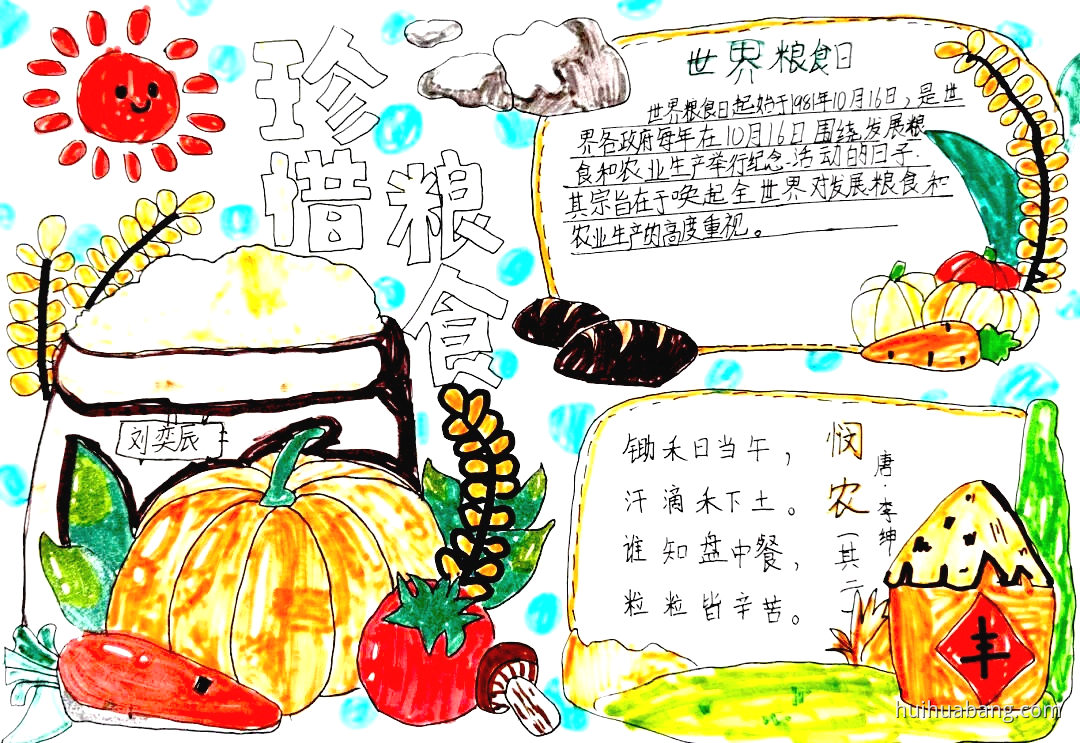 珍惜粮食
世界粮食日
世界粮食日起始于1981年10月16日，是世
界各政府每年在10月16日围绕发展粮
食和农业生产举行纪念活动的日子.
其宗旨在于唤起全世界对发展粮食和
农业生产的高度重视。
刘奕辰
悯农（其二）
唐·李绅
锄禾日当午，
汗滴禾下土。
谁知盘中餐，
粒粒皆辛苦。
丰
huihuabang.com/